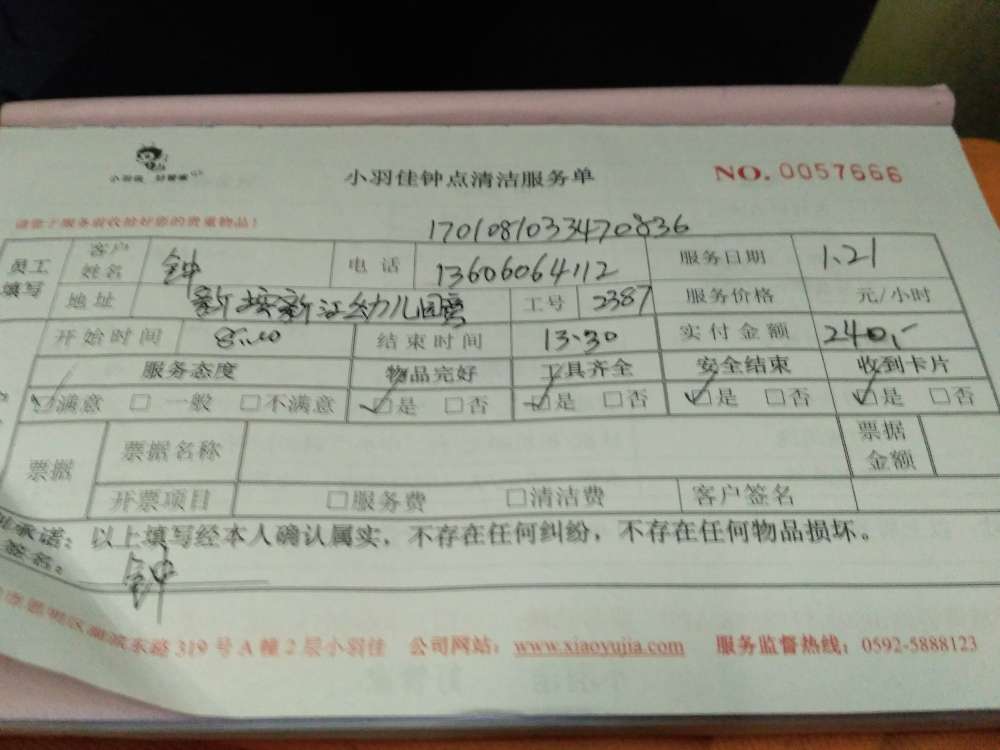 小羽佳 好管家
小羽佳钟点清洁服务单
NO. 0057666
请您于服务前收拾好您的贵重物品!
1701081033470836
员工填写 客户姓名 钟 电话 13606064112 服务日期 1.21
地址 幼儿园 工号 2387 服务价格 元/小时
开始时间 8:00 结束时间 13:30 实付金额 240,-
服务态度 物品完好 工具齐全 安全结束 收到卡片
满意 □ 一般 □不满意 是 □否 是 □否 是 □否 是 □否
票据 票据名称 票据金额
开票项目 □服务费 □清洁费 客户签名
承诺: 以上填写经本人确认属实，不存在任何纠纷，不存在任何物品损坏。
签名: 钟
东路 319 号 A 幢 2 层小羽佳 公司网站: www.xiaoyujia.com 服务监督热线: 0592-5888123